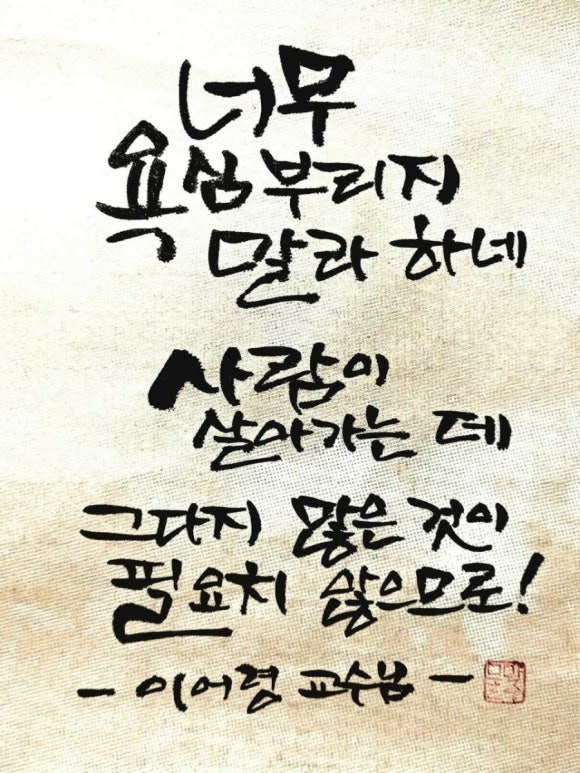 너무
욕심부리지
말라 하네
사람이
살아가는 데
그다지 많은 것이
필요치 않으므로!
- 이어령 교수님 -